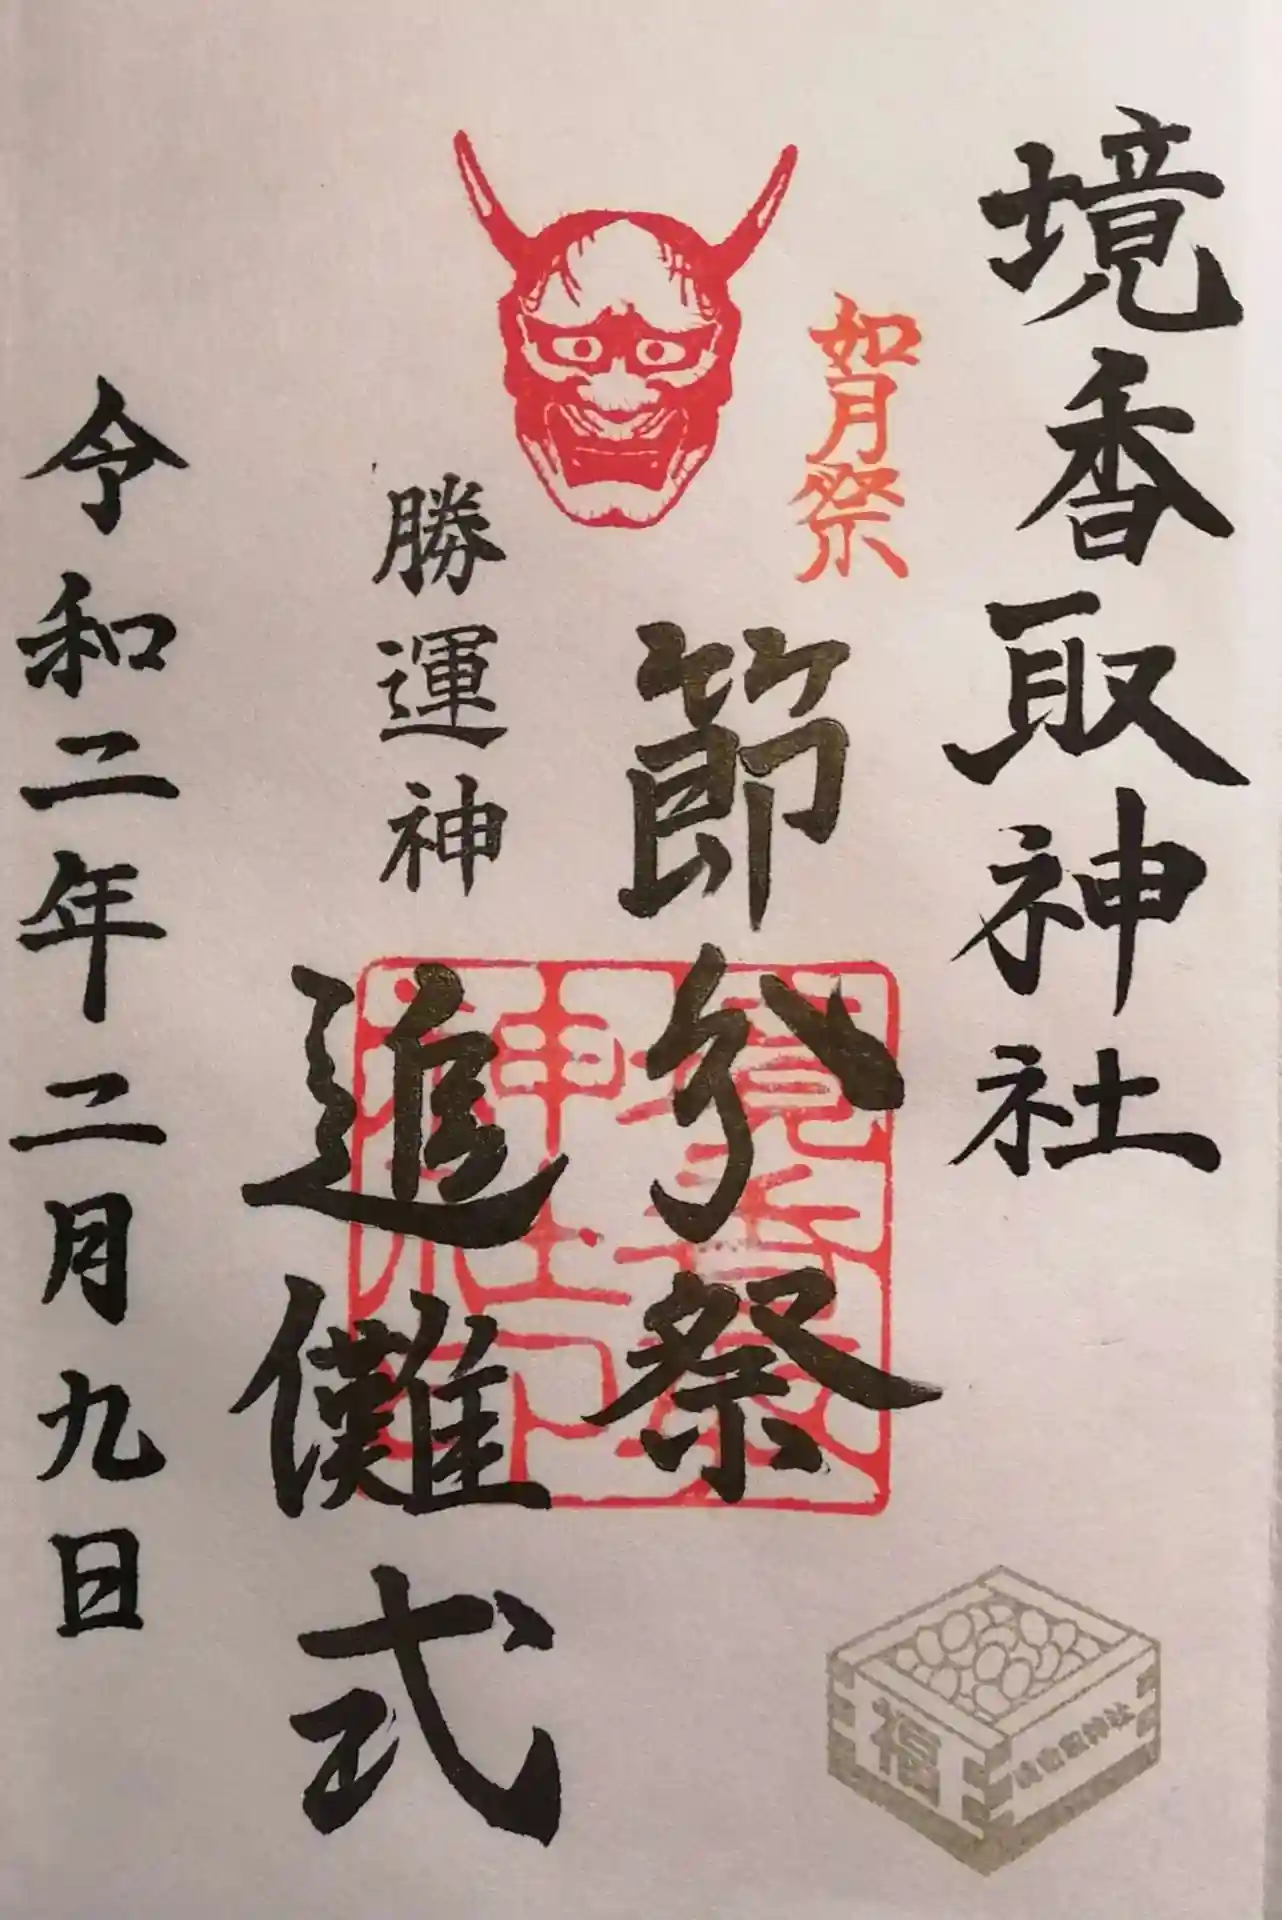 境香取神社
如月祭
節分祭
勝運神
追儺式
令和二年二月九日
境香取神社印
福
境香取神社